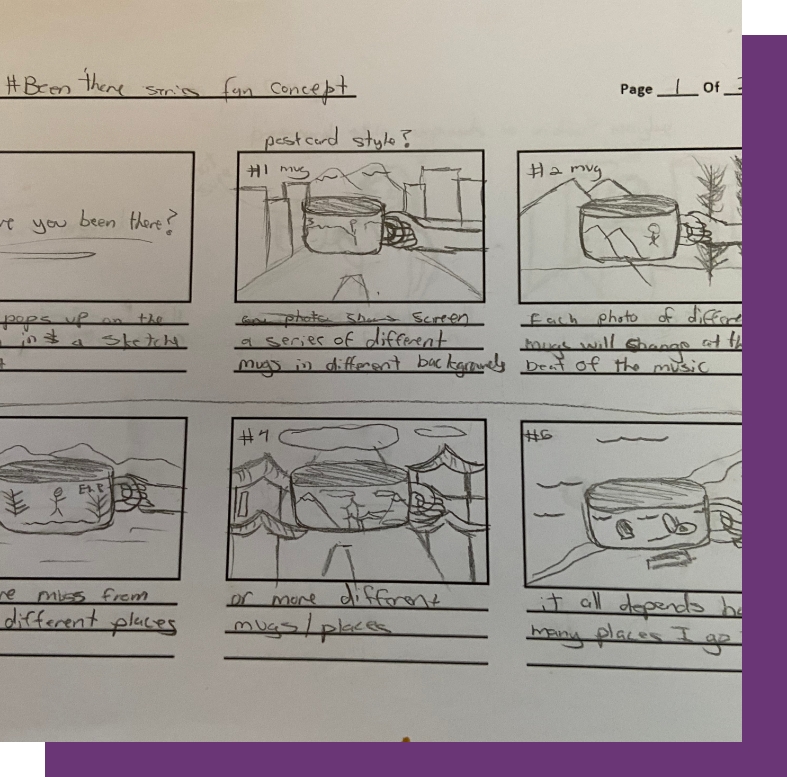 #Been there series fan concept
Page 1 Of
postcard style?
you been there?
#1 mug
#2 mug
pops up on the
a sketch
screen
a series of different
mugs in different backgrounds
Each photo of differe
mugs will change at th
beat of the music
#4
#6
mugs from
different places
or more different
mugs/places
it all depends ho
many places I go